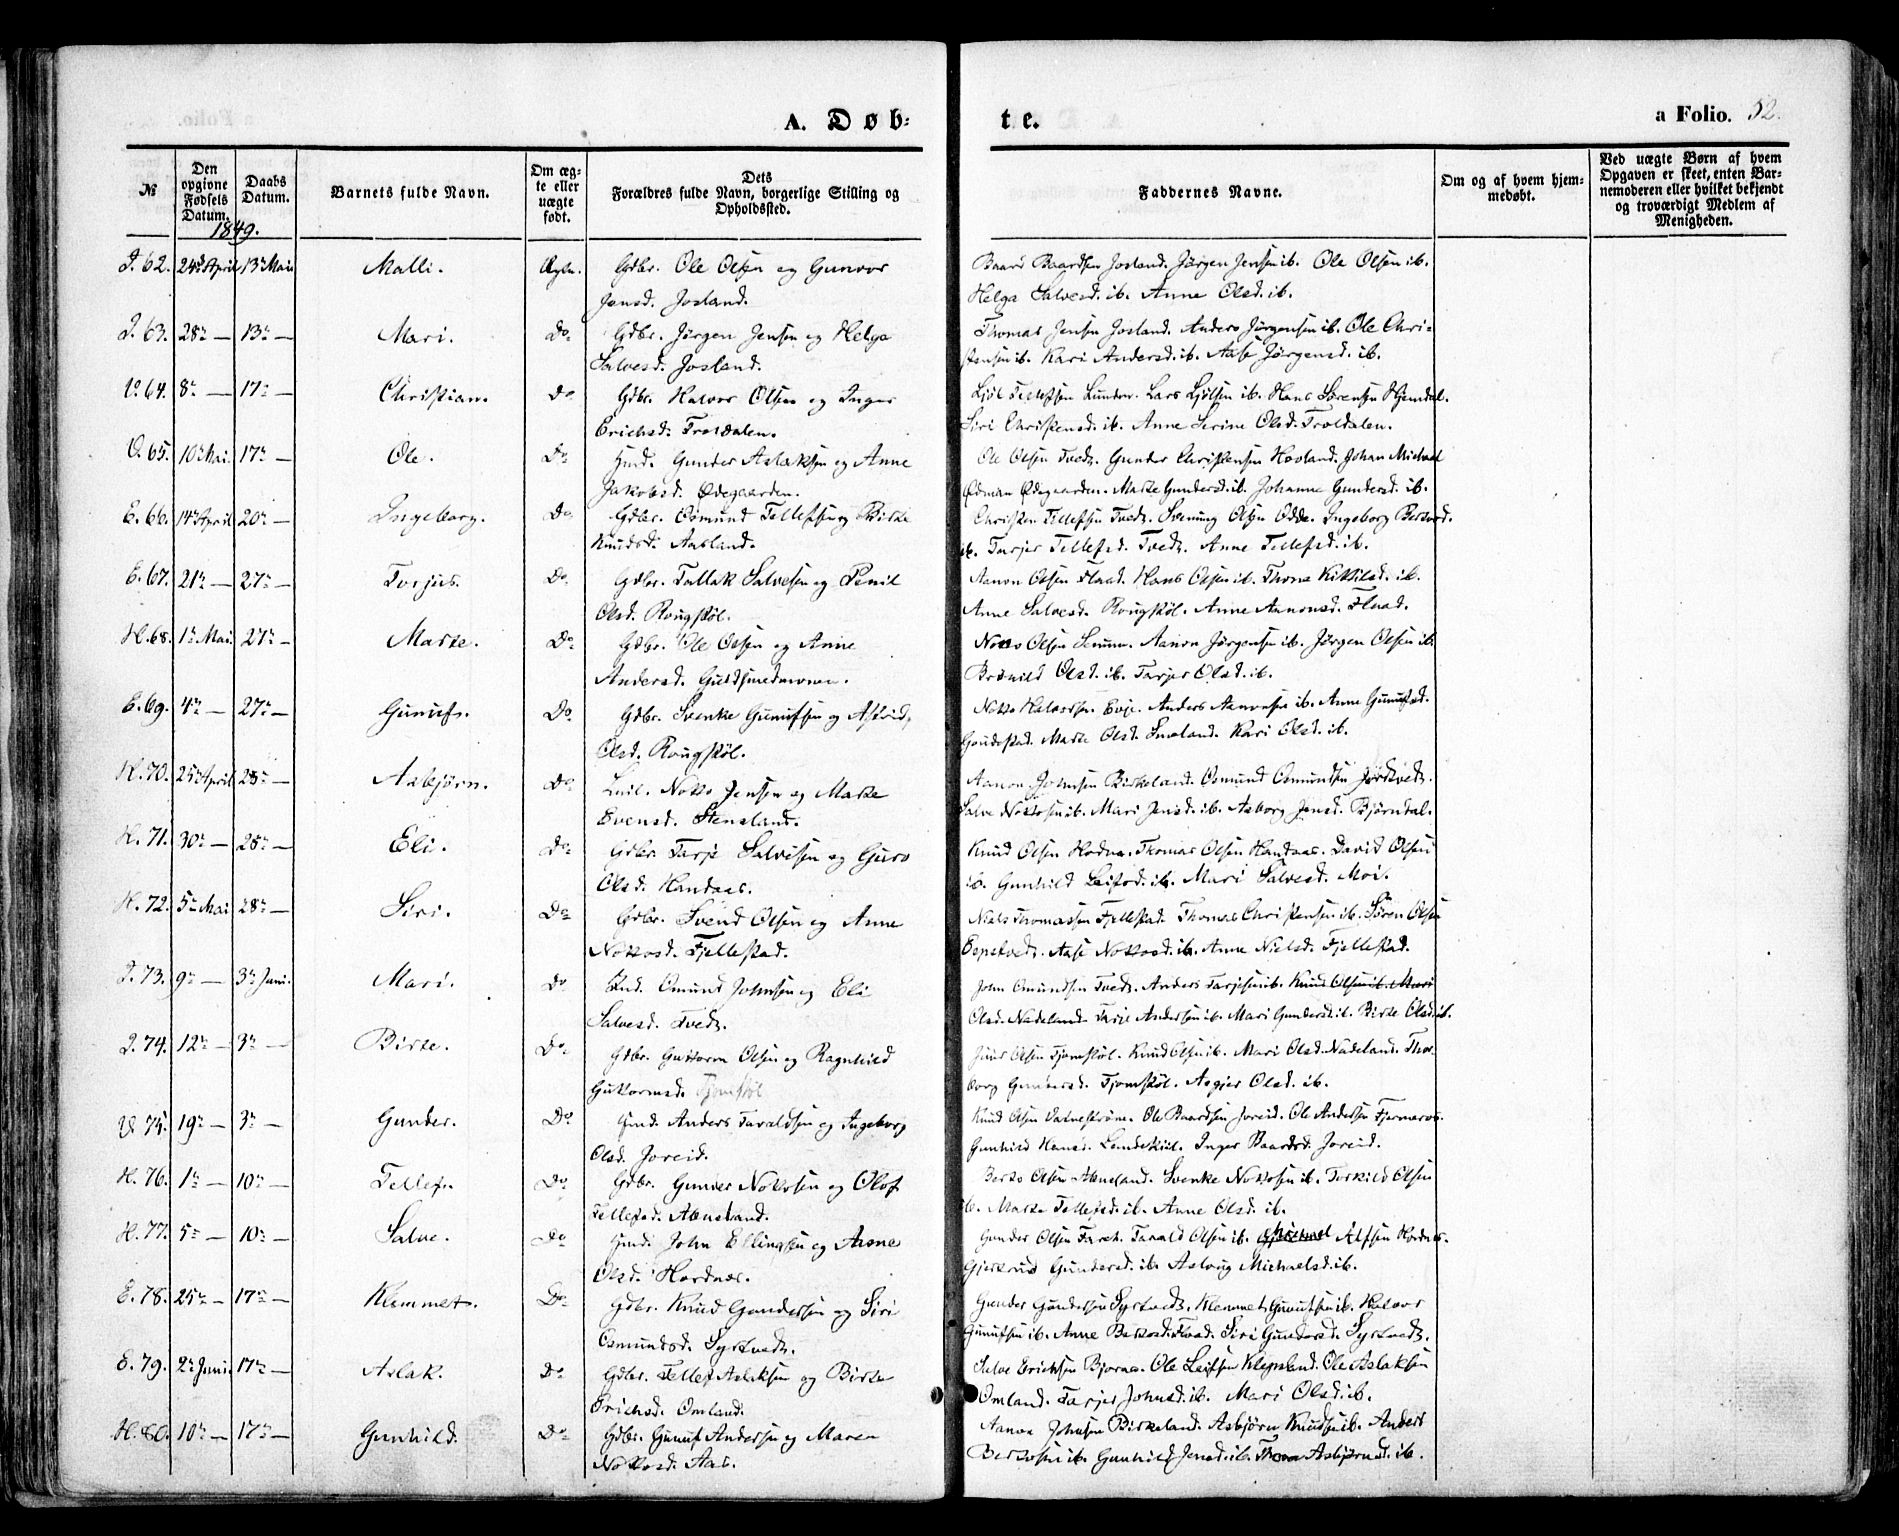 A. Døb-
te.
a Folio. 52.
№
Den opgivne Fødsels Datum.
Daabs Datum.
Barnets fulde Navn.
Om ægte eller uægte født.
Dets Forældres fulde Navn, borgerlige Stilling og Opholdssted.
Faddernes Navne.
Om og af hvem hjemmedøbt.
Ved uægte Børn af hvem Opgaven er skeet, enten Barnemoderen eller hvilket bekjendt og troværdigt Medlem af Menigheden.
1849.
I. 62. 24de April 13de Mai Malli. Ægte. Gdbr. Ole Olsen og Gunvor
Jensd. Josland.
Baard Baardsen Josland. Jørgen Jensen ib. Ole Olsen ib.
Helga Salvesd. ib. Anne Olsd. ib.
I. 63. 28de — 13de — Mari. Do. Gdbr. Jørgen Jensen og Helga
Salvesd. Josland.
Thomas Jensen Josland. Anders Jørgensen ib. Ole Chri-
stensen ib. Kari Andersd. ib. Aase Jørgensd. ib.
V. 64. 8de — 17de — Christian. Do. Gdbr. Halvor Olsen og Inger
Erichsd. Troldalen.
Ljøl Tellefsen Lunden. Lars Ljølsen ib. Hans Sørensen Hjemdal.
Siri Christensd. ib. Anne Serine Olsd. Troldalen.
V. 65. 10de Mai. 17de — Ole. Do. Hmd. Gunder Aslaksen og Anne
Jakobsd. Ødegaarden.
Ole Olsen Tvedt. Gunder Christensen Hovland. Johan Michael
Ødman Ødegaarden. Marte Gundersd. ib. Johanne Gundersd. ib.
E. 66. 14de April 20de — Ingeborg. Do. Gdbr. Osmund Tellefsen og Birte
Knudsd. Aasland.
Christen Tellefsen Tvedt. Svenung Olsen Odde. Ingeborg Bersvd.
ib. Tarjer Tellefsd. Tvedt. Anne Tellefsd. ib.
E. 67. 21de — 27de — Torjus. Do. Gdbr. Tallak Salvesen og Penil
Olsd. Rougstøl.
Aanon Olsen Flaad. Hans Olsen ib. Thone Kittilsd. ib.
Anne Salvesd. Rougstøl. Anne Aanonsd. Flaad.
H. 68. 1de Mai. 27de — Marte. Do. Gdbr. Ole Olsen og Anne
Andersd. Guldsmedmoen.
Notto Olsen Senum. Aanon Jørgensen ib. Jørgen Olsen ib.
Brønild Olsd. ib. Tarjer Olsd. ib.
E. 69. 4de — 27de — Gunuf. Do. Gdbr. Svenke Gunufsen og Astrid
Olsd. Rougstøl.
Notto Halvorsen Evje. Anders Aanonsen ib. Anne Gunufsd.
Goudestad. Marte Olsd. Smeland. Kari Olsd. ib.
H. 70. 25de April 28de — Asbjørn. Do. Leil. Notto Jensen og Marte
Evensd. Stensland.
Aanon Johnsen Birkeland. Osmund Osmundsen
Salve Nottosen ib. Mari Jensd. ib. Asborg Jensd. Bjørndal.
H. 71. 30de — 28de — Eli. Do. Gdbr. Tarje Salvesen og Guro
Olsd. Handaas.
Knud Olsen Hodne. Thomas Olsen Handaas. David Olsen
ib. Gunhild Leifsd. ib. Mari Salvesd. Moi.
H. 72. 5de Mai 28de — Siri. Do. Gdbr. Svend Olsen og Anne
Nottosd. Fjellestad.
Niels Thomassen Fjellestad. Thomas Christensen ib. Søren Olsen
Espetvedt. Aase Nottosd. ib. Anne Nielsd. Fjellestad.
I. 73. 9de — 3de Juni. Mari. Do. Ind. Omund Johnsen og Eli
Salvesd. Tvedt.
John Omundsen Tvedt. Anders Tarjesen ib. Knud Olsen ib. Mari
Olsd. Nadeland. Tarje Andersen ib. Mari Gundersd. ib. Birte Olsd. ib.
I. 74. 12de — 3de — Birte. Do. Gdbr. Guttorm Olsen og Ragnhild
Guttormsd. Fjomstøl
Juur Olsen Fjomstøl. Knud Olsen ib. Mari Olsd. Nadeland. Thor-
borg Gundersd. Fjomstøl. Asgjer Olsd. ib.
V. 75. 19de — 3de — Gunder. Do. Hmd. Anders Taraldsen og Ingeborg
Olsd. Joreid.
Knud Olsen Vatnestrøm. Ole Baardsen Joreid. Ole Andersen
Gunhild Hansd. Landekiil. Inger Baardsd. Joreid.
H. 76. 1de — 10de — Tellef. Do. Gdbr. Gunder Nottosen og Olof
Tellefsd. Abusland.
Berto Olsen Abusland. Svenke Nottosen ib. Torkild Olsen
ib. Marte Tellefsd. ib. Anne Olsd. ib.
H. 77. 5de — 10de — Salve. Do. Hmd. John Ellingsen og Anne
Olsd. Hordnæs.
Gunder Olsen Faret. Tarald Olsen ib. Michael Alfsen Hordnæs.
Gjertrud Gundersd. ib. Aslaug Michaelsd. ib.
E. 78. 25de — 17de — Klemmet. Do. Gdbr. Knud Gundersen og Siri
Osmundsd. Syrtvedt.
Gunder Gundersen Syrtvedt. Klemmet Gunufsen ib. Halvor
Gunufsen ib. Anne Bertosd. Flaad. Siri Gundersd. Syrtvedt.
E. 79. 2de Juni. 17de — Aslak. Do. Gdbr. Tellef Aslaksen og Birte
Erichsd. Omland.
Salve Ericksen Bjoraa. Ole Leifsen Klepsland. Ole Aslaksen
Omland. Tarjer Johnsd. ib. Mari Olsd. ib.
H. 80. 10de — 17de — Gunhild. Do. Gdbr. Gunuf Andersen og Maren
Nottosd. Aas.
Aanon Johnsen Birkeland. Asbjørn Knudsen ib. Anders
Bertosen ib. Gunhild Jensd. ib. Thone Asbjørnsd. ib.